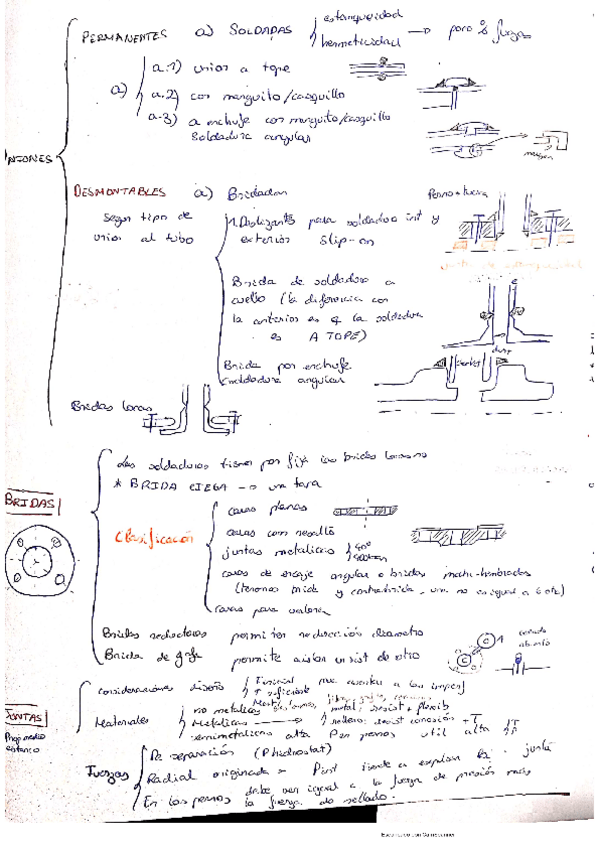 PERMANENTES a) SOLDADAS estanqueidad
hermeticidad → para q fuga
a) a.1) unión a tope
a.2) con manguito/casquillo
a.3) a enchufe con manguito/casquillo
Soldadura angular
margen
UNIONES
DESMONTABLES a) Bridadas
Perno + tuerca
Según tipo de
unión al tubo
Deslizante para soldadura int y
exterior Slip-on
Brida de soldadura a
cuello (la diferencia con
la anterior es q la soldadura
es A TOPE)
Brida por enchufe
soldadura angular
Bridas locas
Las soldaduras tienen por fija las bridas locas no
* BRIDA CIEGA → una tapa
BRIDAS
Clasificación
caras planas
caras con resalto
juntas metálicas
caras de encaje angular o bridas macho-hembradas
caras para
Bridas reductoras permiten reducción diametro
Brida de gafa permite aislar un ist de otro
cerrado
abierto
JUNTAS
consideraciones diseño
suficiente
Materiales
no metálicas
Metálicas →
semimetálicas alta P en pernos util alta ↑T
↑P
Fuerzas
De separación (P hidrostat)
Radial originada x Pint tiende a expulsar la junta
En los pernos debe ser igual a la fuerza de presión más
la fuerza de sellado.
Escaneado con CamScanner